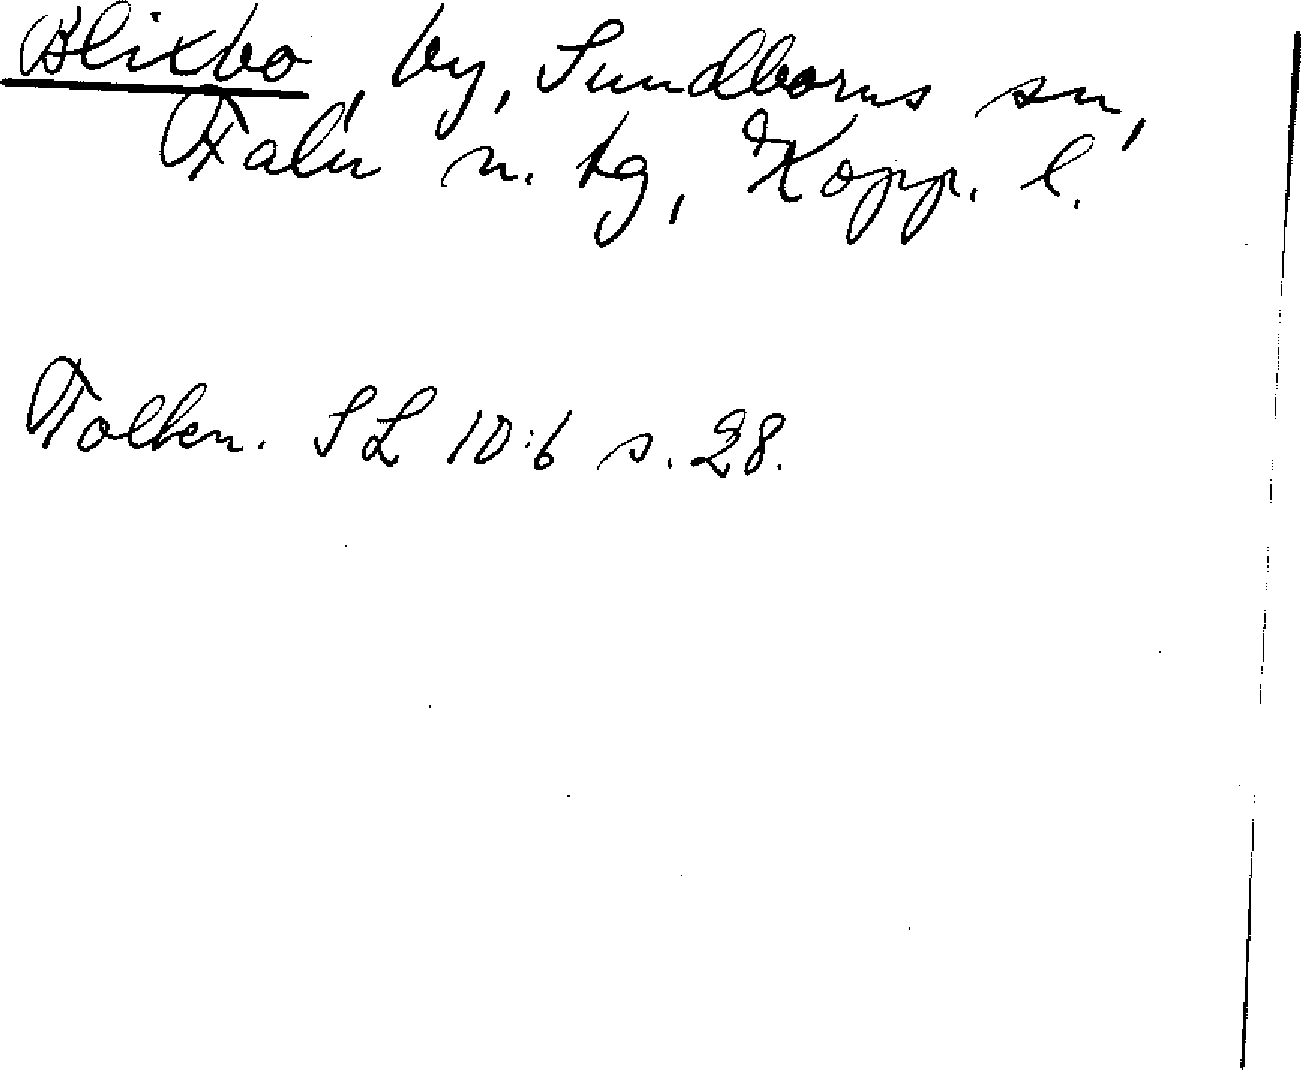 Blixbo, by, Sundborns sn,
Falu n. tg, Kopp. l.
Tolkn. SL 10:6 s. 28.